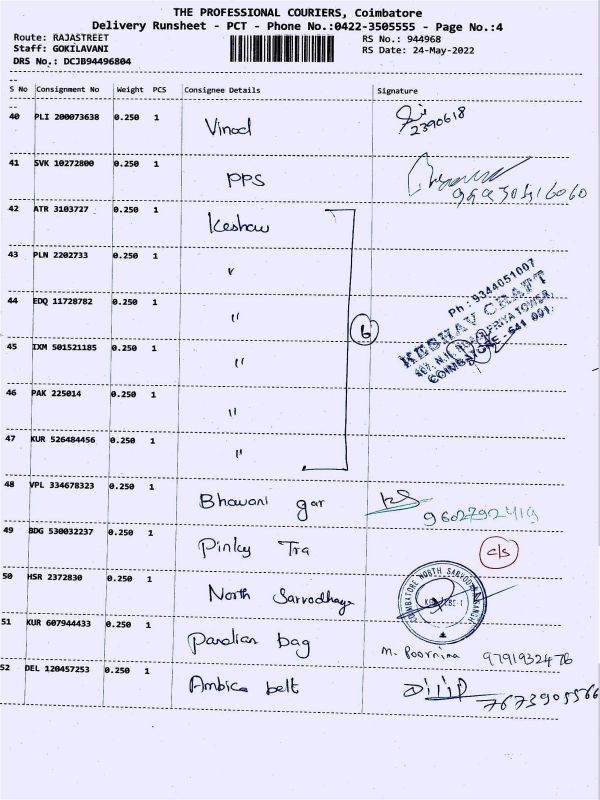 THE PROFESSIONAL COURIERS, Coimbatore
Delivery Runsheet - PCT - Phone No.:0422-3505555 - Page No.:4
Route: RAJASTREET
RS No.: 944968
Staff: GOKILAVANI
RS Date: 24-May-2022
DRS No.: DCJB94496804
S No Consignment No Weight PCS Consignee Details Signature
40 PLI 200073638 0.250 1 Vinod 2390618
41 SVK 10272800 0.250 1 PPS
42 ATR 3103727 0.250 1 Keshav
43 PLN 2202733 0.250 1 "
44 EDQ 11728782 0.250 1 "
6
Ph : 9344051007
KESHAV CRAFT
COIMBATORE - 641 001.
45 IXM 501521185 0.250 1 "
46 PAK 225014 0.250 1 "
47 KUR 526484456 0.250 1 "
48 VPL 334678323 0.250 1 Bhavani gar KS 9602792419
49 BDG 530032237 0.250 1 Pinky Tra c/s
50 HSR 2372830 0.250 1 North Sarvodhaya
COIMBATORE NORTH SARVODAYA SANGH
51 KUR 607944433 0.250 1 Pandian bag M. Poornima 9791932476
52 DEL 120457253 0.250 1 Ambica belt Dilip 7673905566